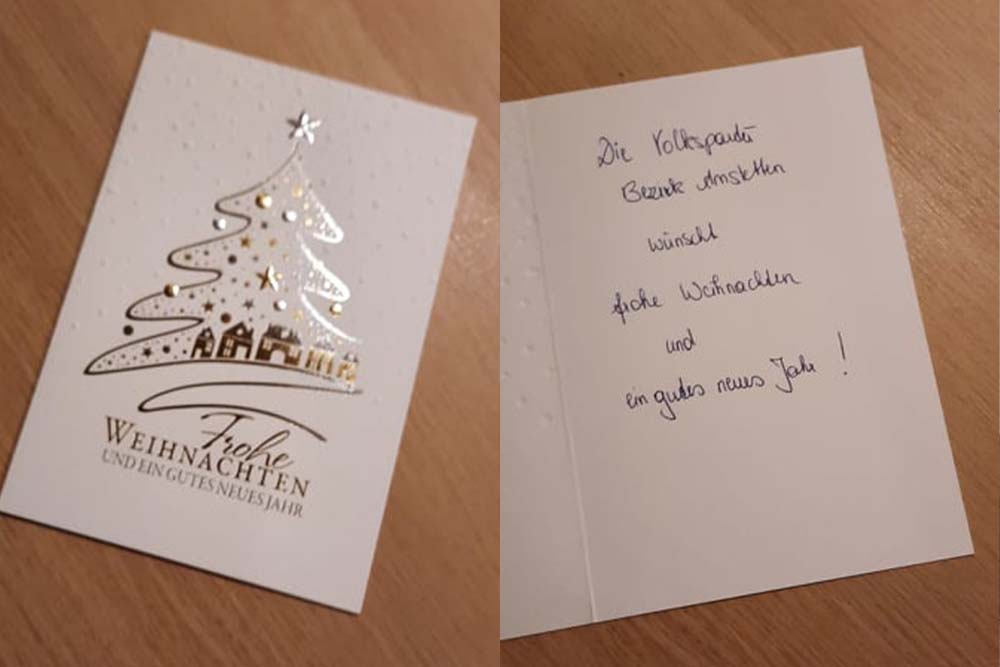 Frohe
WEIHNACHTEN
UND EIN GUTES NEUES JAHR
Die Volkspartei
Bezirk Amstetten
wünscht
frohe Weihnachten
und
ein gutes neues Jahr !